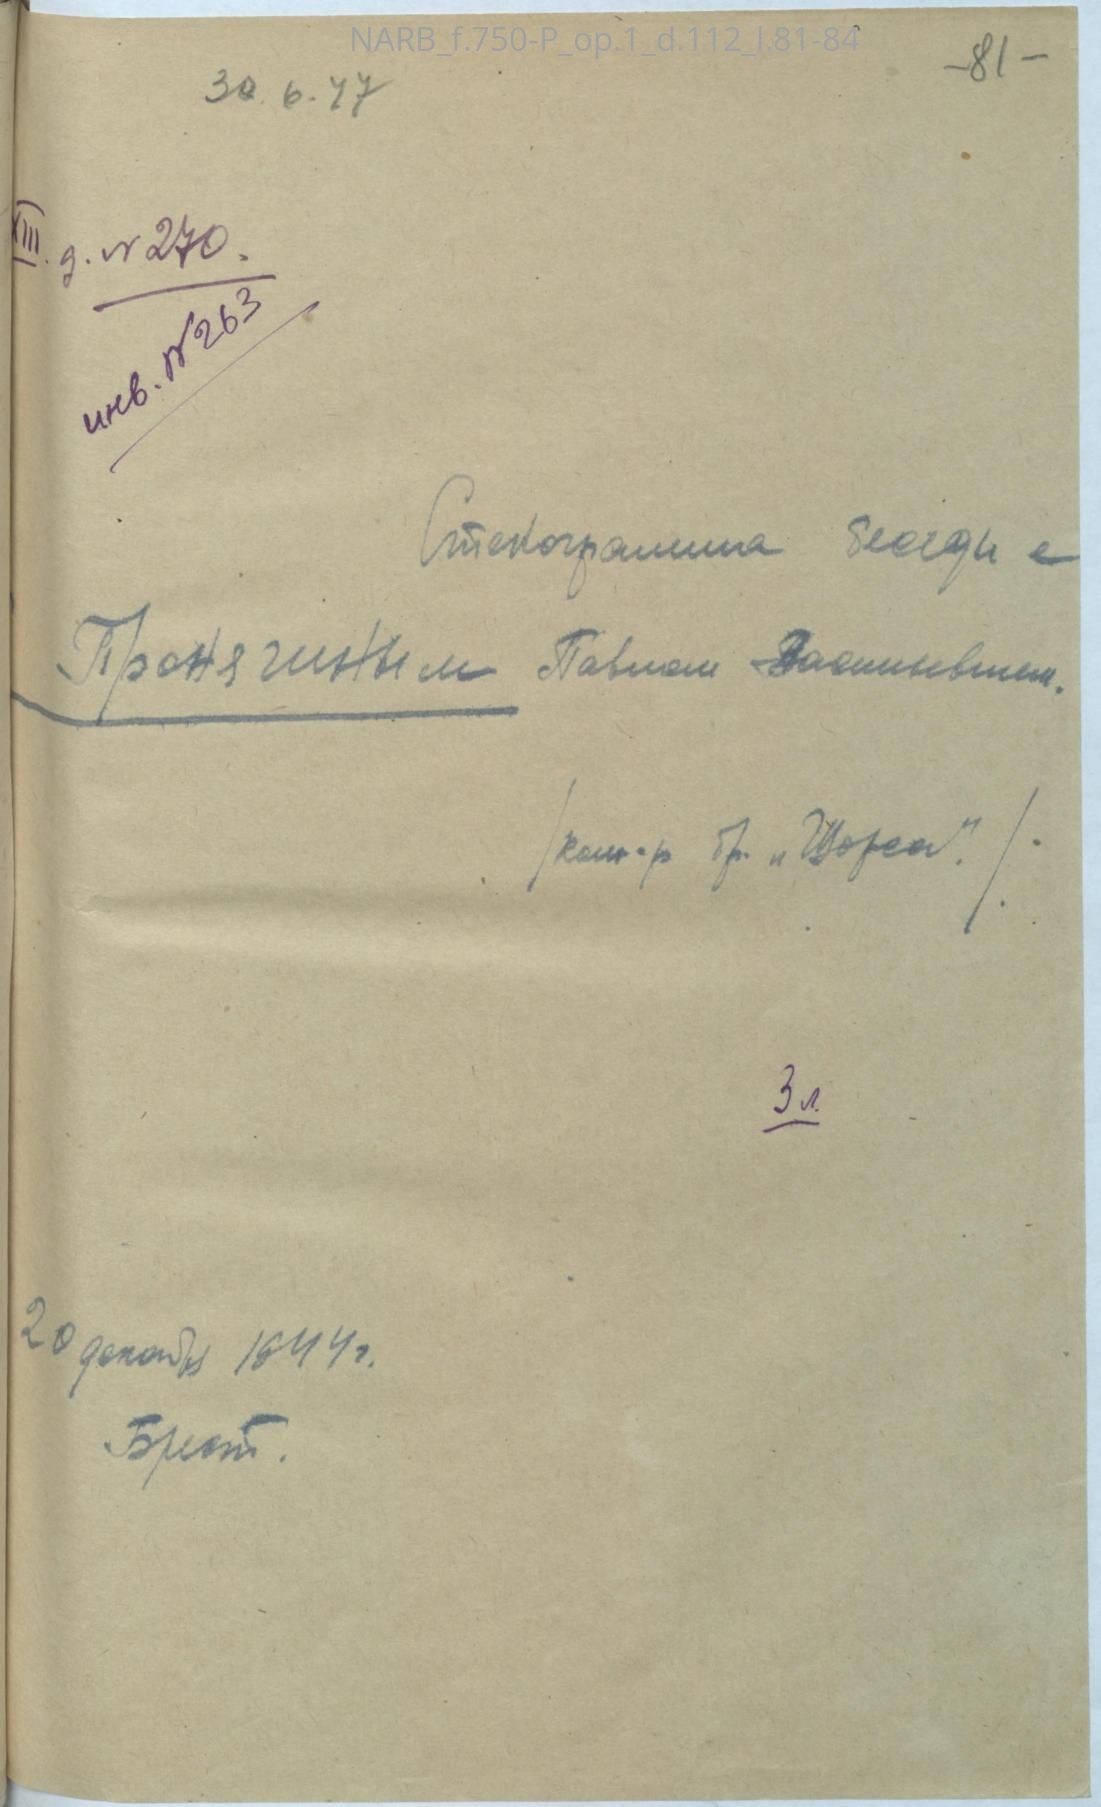 NARB_f.750-P_op.1_d.112_l.81-84
-81-
30.6.47
XIII. д. №270.
инв. №263
Стенограмма беседы с
Пронягиным Павлом Васильевичем.
/ком-р бр. „Щорса"./.
3 л.
20 декабря 1944 г.
Брест.